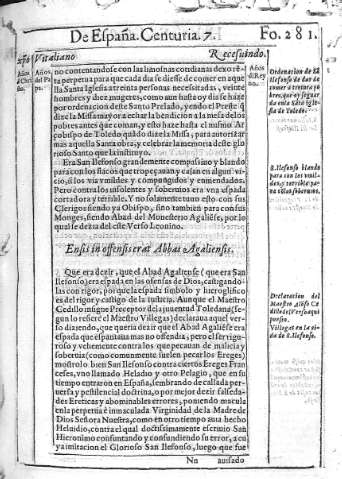 De España. Centuria. 7.
Fo. 281.
Vitaliano
Recesuindo.
Años del Pa
Años d Rey
no contentandose con las limosnas cotidianas dexo ré
ta perpetua para que cada dia se diesse de comer en aque
lla Santa Iglesia a treinta personas necessitadas, veinte
hombres y diez mugeres, como aun hasta oy dia se haze
por ordenacion deste Santo Prelado, yendo el Preste q
dize la Missa mayor a echar la bendicion a la mesa de los
pobres antes que coman, y esto haze hasta el mismo Ar
çobispo de Toledo quãdo dize la Missa, para autorizar
mas aquella Santa obra, y celebrar la memoria deste glo
rioso Santo que la instituyo.
Era San Ilefonso grandemente compassivo y blando
para con los flacos que tropeçauan y caian en algun vi-
cio, si los via vmildes y compungidos y enmendados.
Pero contra los insolentes y sobervios era vna espada
cortadora y terrible. Y no solamente tuuo esto con sus
Clerigos siendo ya Obispo, sino tambien para con sus
Monges, siendo Abad del Monesterio Agaliése, por lo
qual se dezia del este Verso Leonino.
Ensis in offensis erat Abbas Agaliensis.
Que era dezir, que el Abad Agaliense (que era San
Ilefonso) era espada en las ofensas de Dios, castigando-
las con rigor, por que la espada simbolo y hieroglifico
es del rigor y castigo de la justicia. Aunque el Maestro
Cedillo insigne Preceptor de la juventud Toledana (se-
gun lo refiere el Maestro Villegas) declaraua aquel ver-
so diziendo, que queria dezir que el Abad Agaliése era
espada que espantaua mas no ofendia, pero el ser rigu-
roso y vehemente contra los que pecauan de malicia y
sobervia (como comunmente suelen pecar los Ereges)
mostrolo bien San Ilefonso contra ciertos Ereges Fran
ceses, vno llamado Heladio y otro Pelagio, que en su
tiempo entraron en España, sembrando de callada per-
uersa y pestilencial doctrina, o por mejor dezir falseda-
des Ereticas y abominables errores, poniendo macula
en la perpetua è inmaculada Virginidad de la Madre de
Dios Señora Nuestra, como en otro tiempo auia hecho
Heluidio, contra el qual doctissimamente escriuio San
Hieronimo confutando y confundiendo su error, a cu
ya imitacion el Glorioso San Ilefonso, luego que fue
Nn
auisado
Ordenacion de Sã
Ilefonso de dar de
comer a treinta po
bres, que oy se guar
da en la Sãta Igle
sia de Toledo.
S. Ilefonso blando
para con los vmil-
des, y terrible pa-
ra cõ los soberuios.
Declaracion del
Maestro Alõso Ce
dillo de el Verso aqui
puesto.
Villegas en la vi-
da de S. Ilefonso.